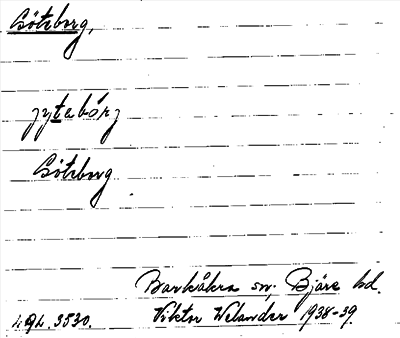 Götborg,
jytabórj
Götborg
Barkåkra sn. Bjäre hd.
Viktor Welander 1938-39.
3530.